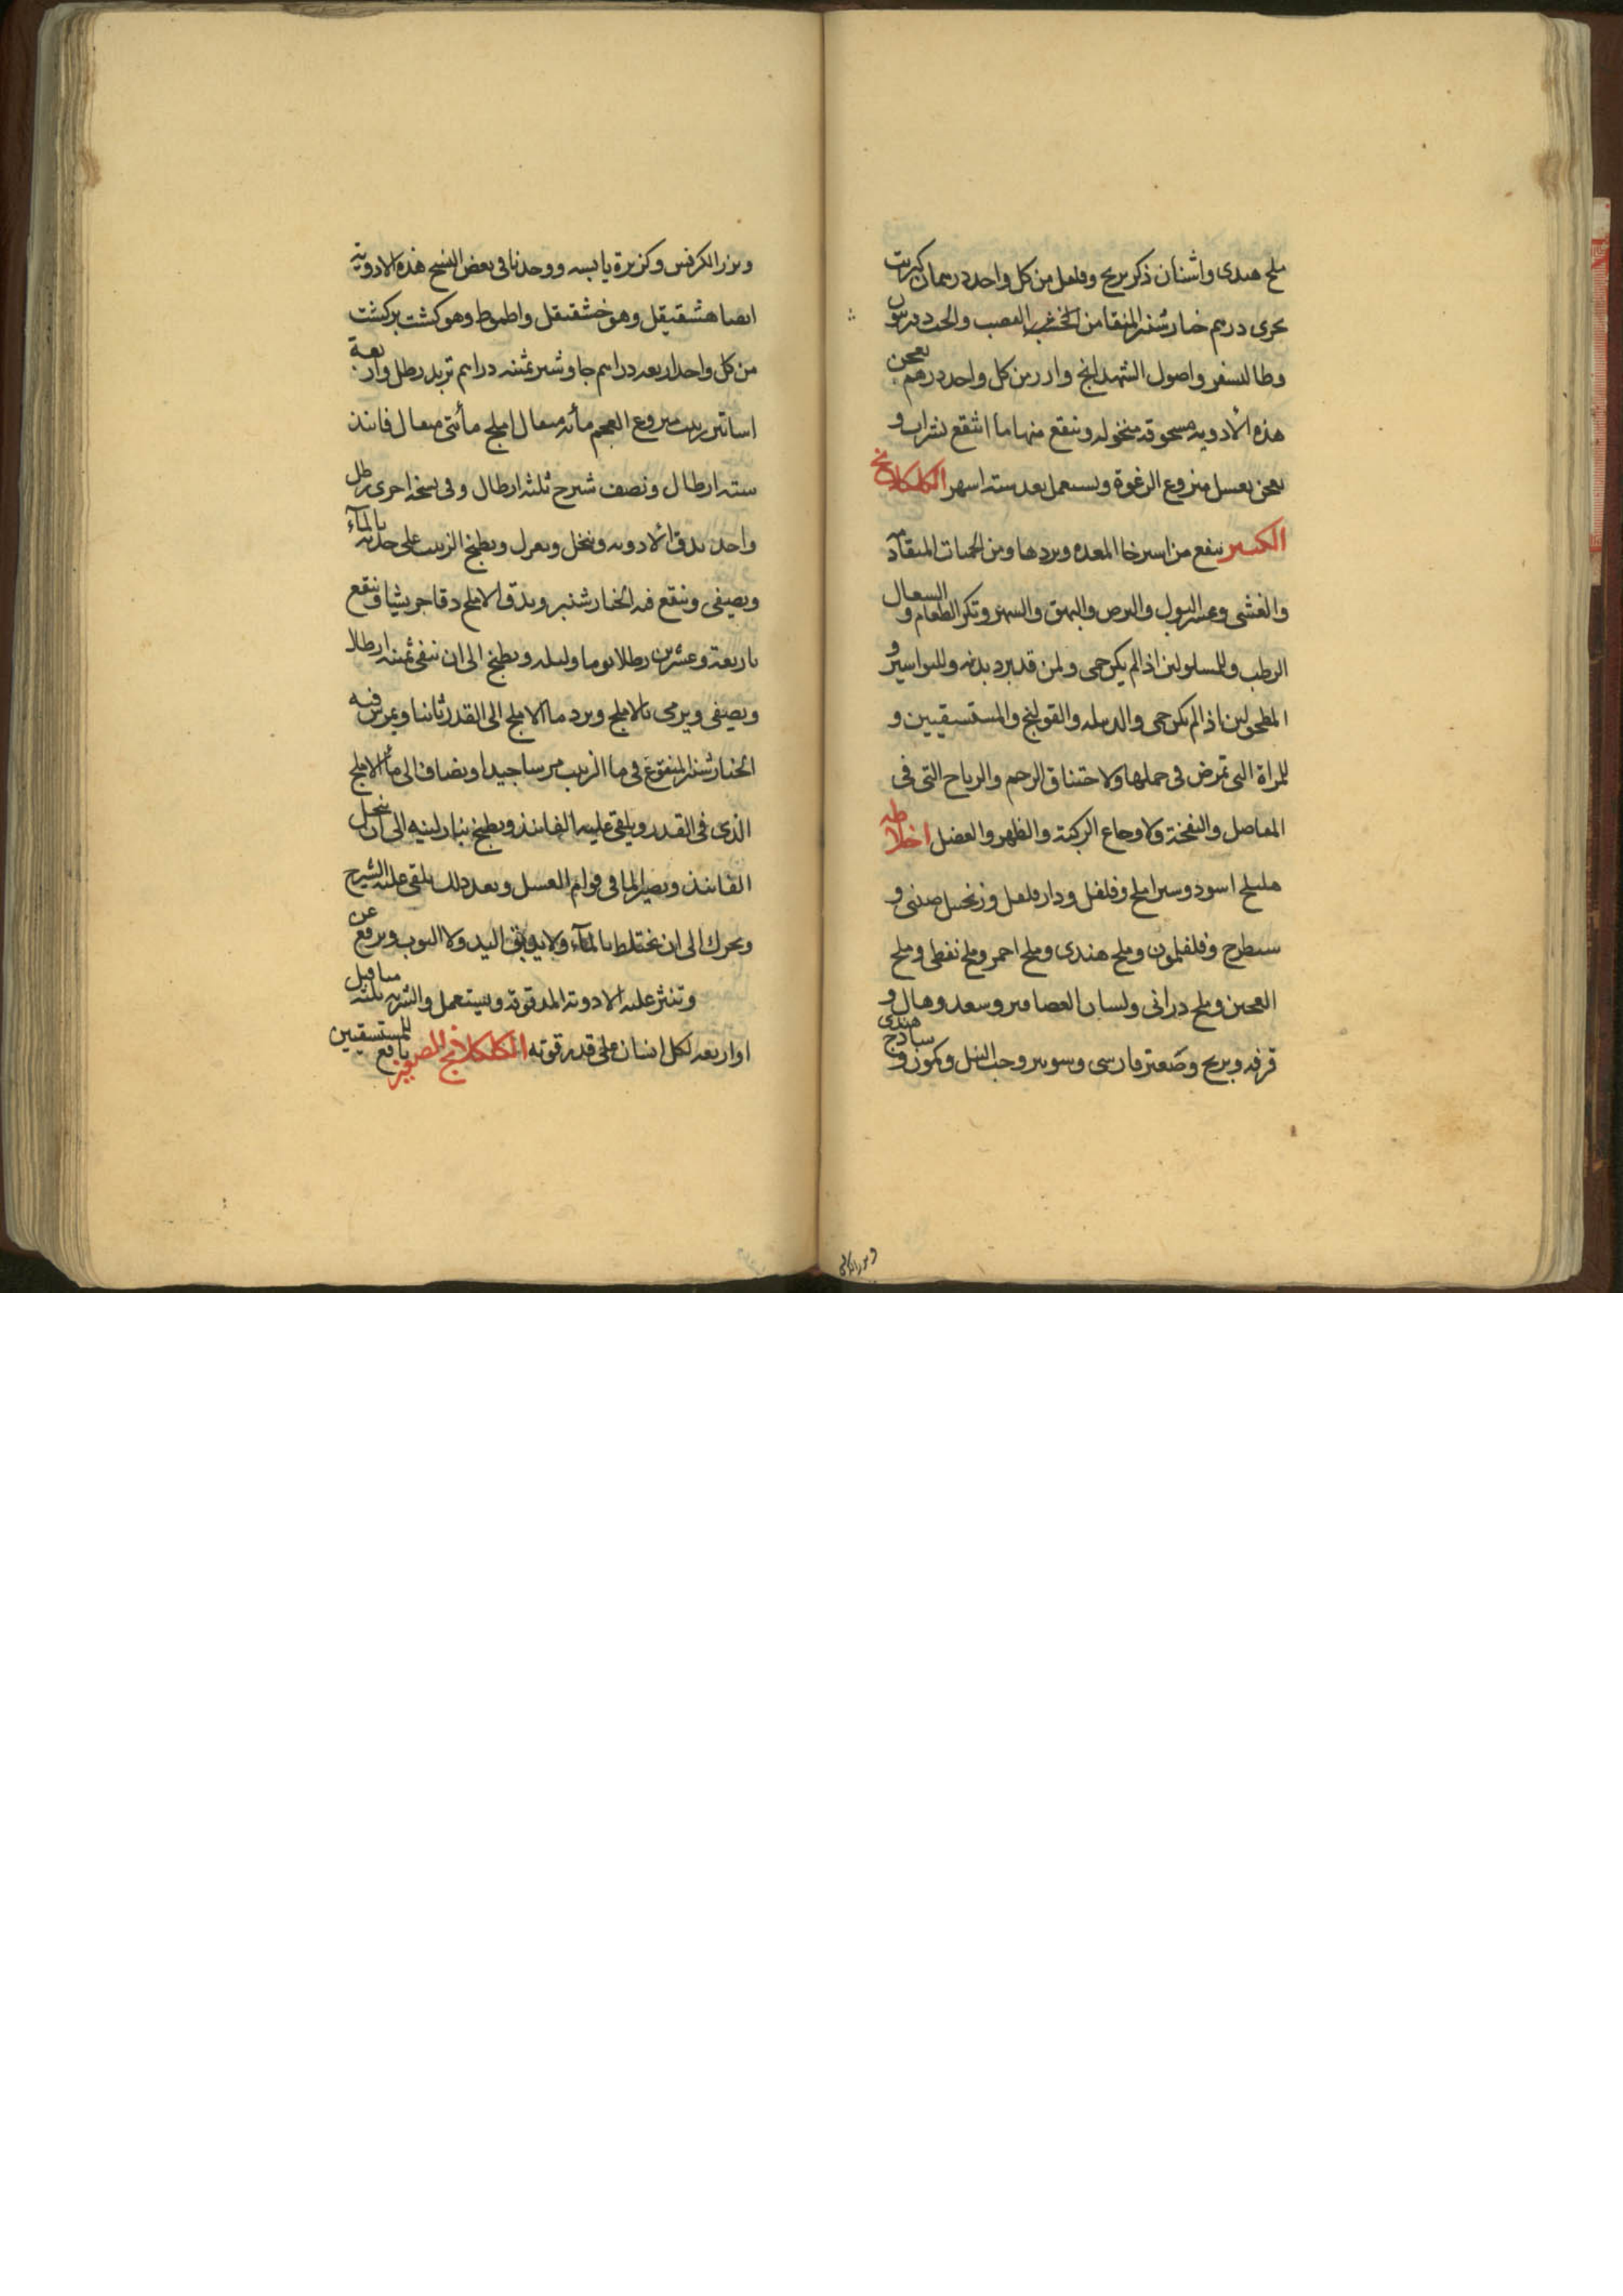 ملح هندى واشنان ذكر برنج وفلفل من كل واحد درهمان كبريت
بحرى درهم خيارشنبر المنقا من الخشب القصب والحب
وطاليسفر واصول الشهدانج من كل واحد درهم يعجن
هذه الأدويه مسحوقه منخوله وينقع منها ما انتقع بشراب و
يعجن بعسل منزوع الرغوة ويستعمل بعد سته اشهر الكلكلانج
الكبير ينفع من استرخا المعده وبردها ومن الحميات المتقادمة
والغشى وعسر البول والبرص والبهق والسهر وتكره الطعام والسعال
الرطب وللمسلولين اذا لم يكن حمى ولمن قد برد بدنه وللبواسير و
المطحولين اذا لم تكن حمى والدبيله والقولنج والمستسقيين و
للمراة التى تمرض فى حملها ولاختناق الرحم والرياح التى فى
المفاصل والنفخة ولاوجاع الركبة والظهر والعضل اخلاطه
هليلج اسود وسير املج وفلفل ودار فلفل وزنجبيل صينى و
شيطرج وفلفلمون وملح هندى وملح احمر وملح نفطى وملح
العجين وملح درانى ولسان العصافير وسعد وهال و
قرفه وبرنج وصعتر فارسى وشونيز وحب النيل وكمون و ساذج هندى
وبزر الكرفس
وبزر الكرفس وكزبرة يابسه ووجدنا فى بعض النسخ هذه الادويه
ايضا هشقيقل وهو خشقيقل واطموط وهو كشت بركشت
من كل واحد اربعه دراهم جاوشير ثمنيه دراهم تربد رطل واربعة
اساتير زبيب منزوع العجم مأئه مثقال املج مأئتى مثقال فانيذ
سته ارطال ونصف شيرج ثلثه ارطال وفى نسخه اخرى رطل
واحد تدق الأدويه وتنخل وتعزل ويطبخ الزبيب على حدته بالمآء
ويصفى وينقع فيه الخيارشنبر ويدق الاملج دقا جريشا وينقع
باربعة وعشرين رطلا يوما وليله ويطبخ الى ان يبقى ثمنيه ارطال
ويصفى ويرمى بالاملج ويرد ما الاملج الى القدر ثانيا ويمرس فيه
الخيارشنبر المنقوع فى ما الزبيب مرسا جيدا ويضاف الى مأ الاملج
الذى فى القدر ويلقى عليه الفانيذ ويطبخ بنار لينه الى ان ينحل
الفانيذ ويصير الما فى قوام العسل وبعد ذلك يلقى عليه الشيرج
ويحرك الى ان يختلط بالمآء ولا يدبق اليد ولا الثوب ويرفع عن
وتنثر عليه الادوية المدقوقه ويستعمل والشربه ثلثه مثاقيل
او اربعه لكل انسان على قدر قوته الكلكلانج الصغير نافع للمستسقيين